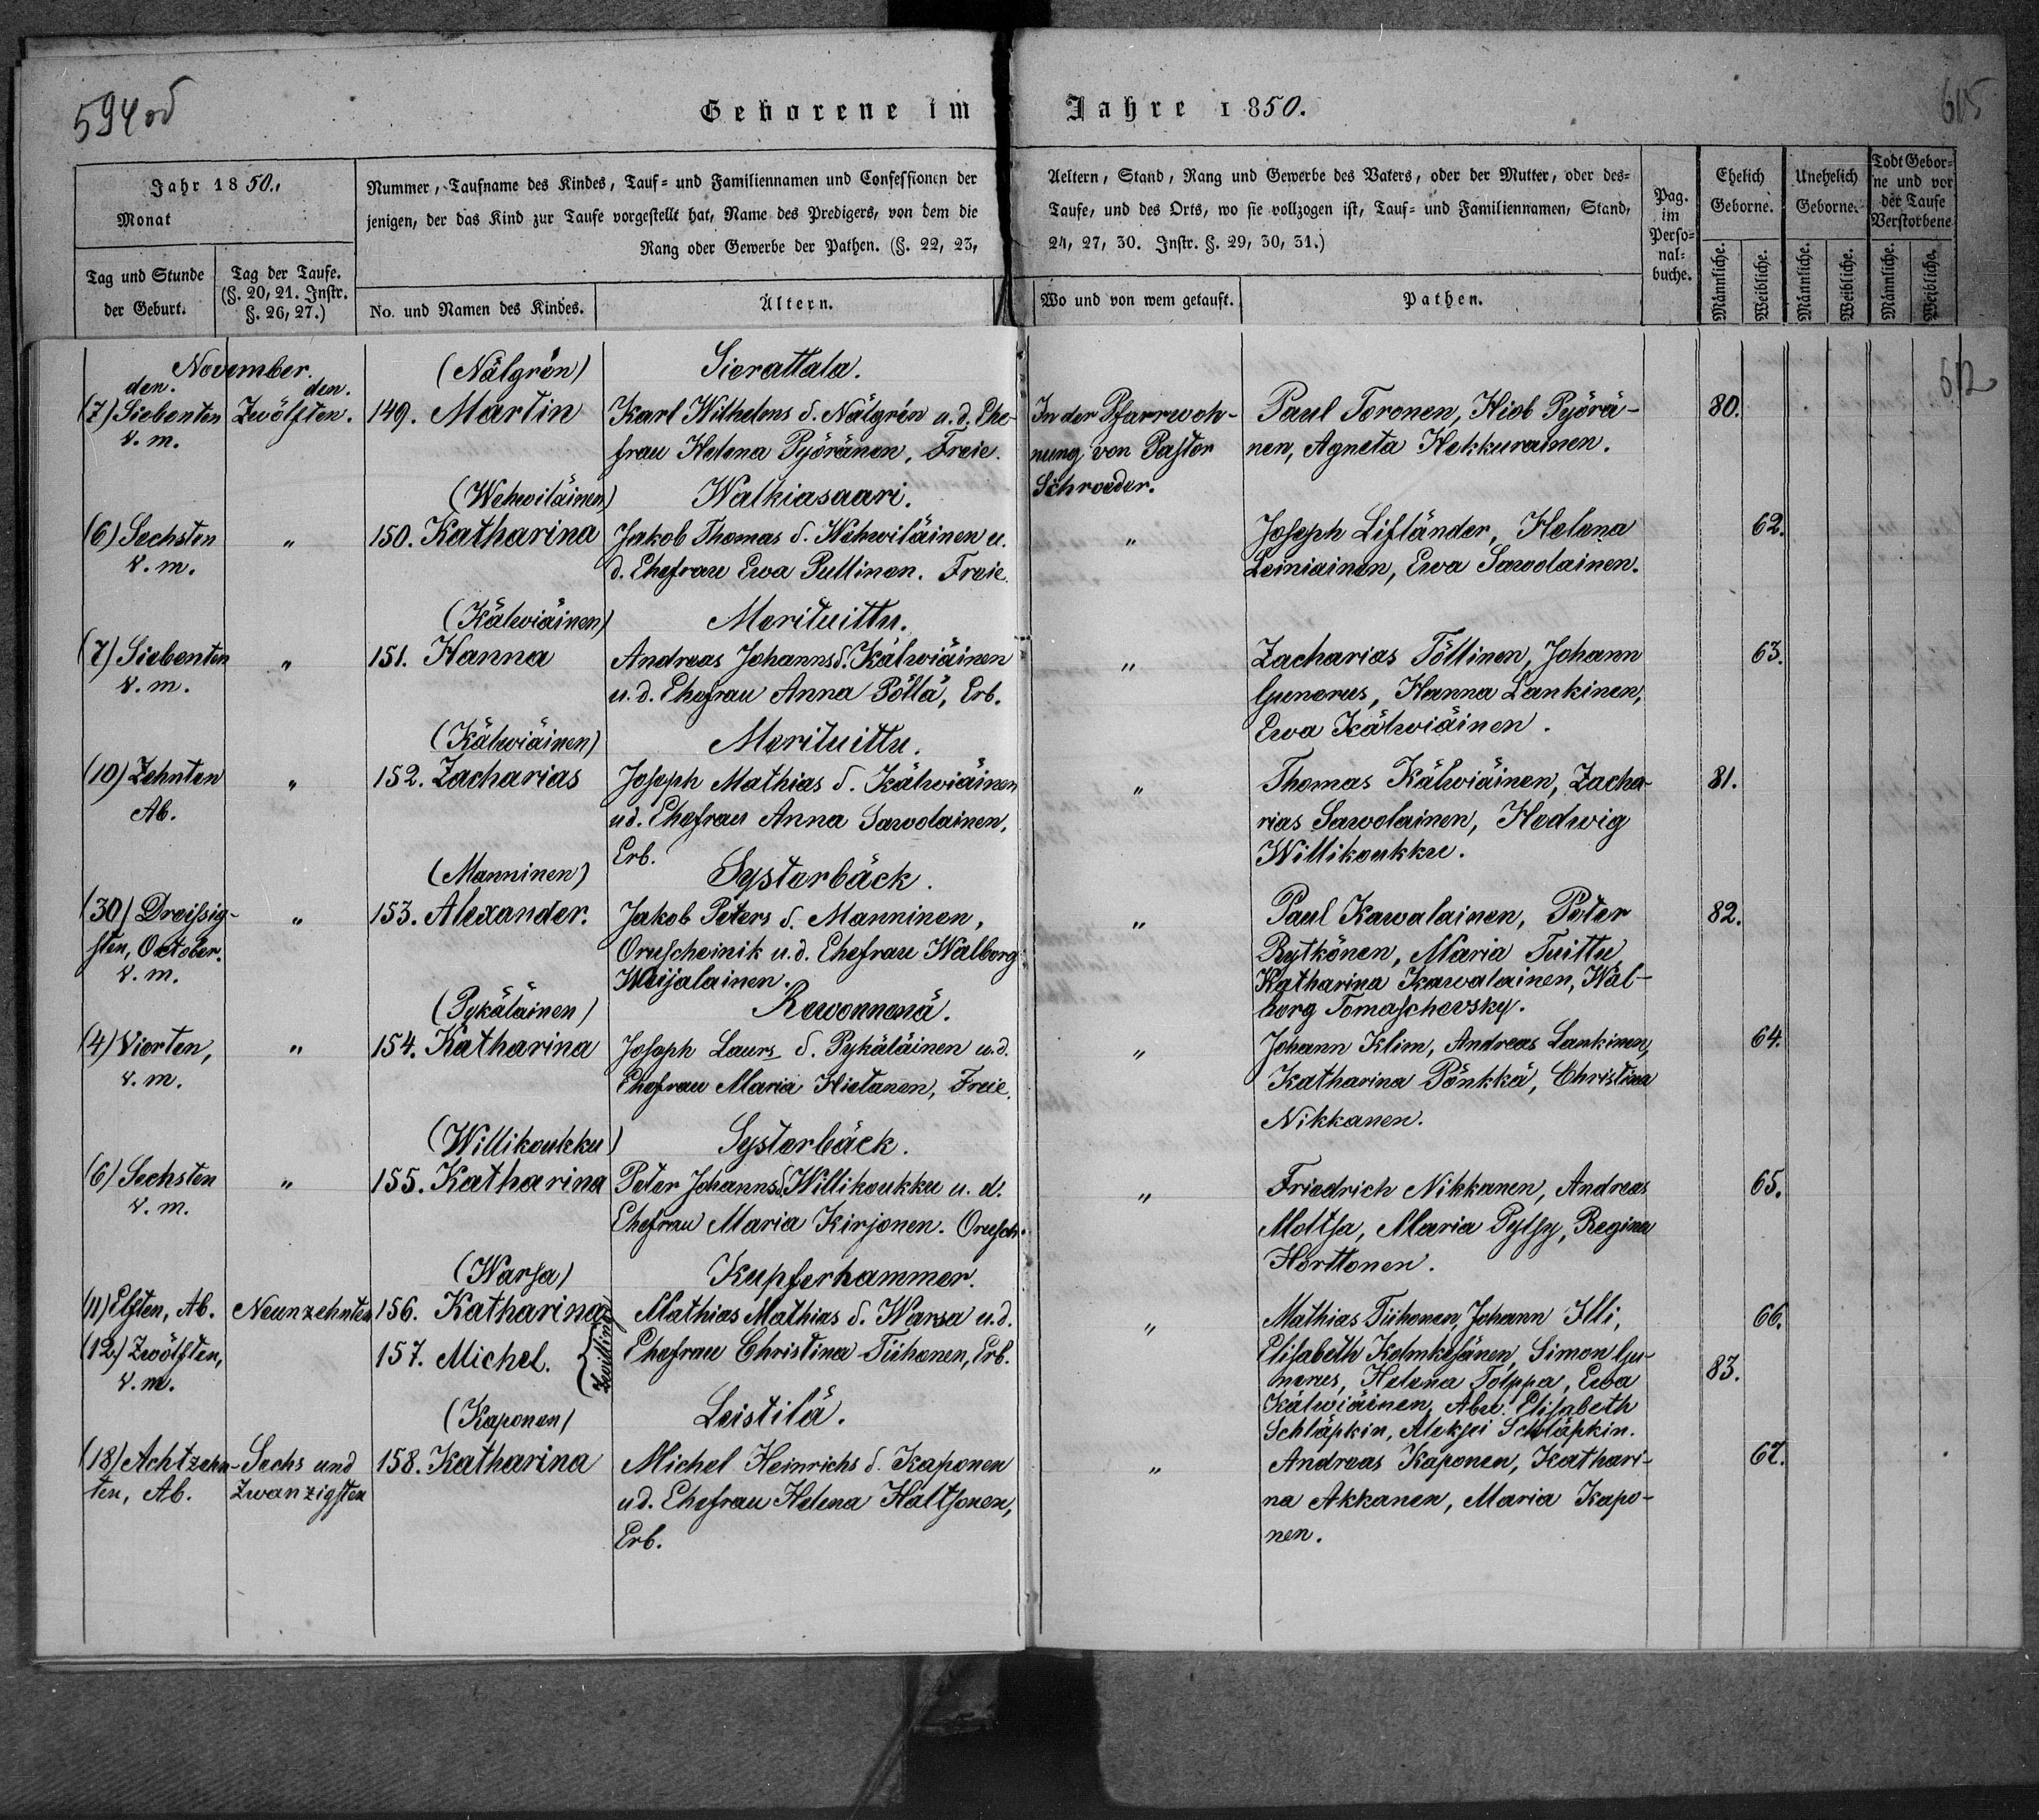 594 od
615
Geborene im Jahre 1850.
Jahr 1850.
Monat
Tag und Stunde
der Geburt.
Tag der Taufe.
(§. 20, 21. Instr.
§. 26, 27.)
Nummer, Taufname des Kindes, Tauf- und Familiennamen und Confessionen der
jenigen, der das Kind zur Taufe vorgestellt hat, Name des Predigers, von dem die
Rang oder Gewerbe der Pathen. (§. 22, 23,
No. und Namen des Kindes.
Ältern.
Aeltern, Stand, Rang und Gewerbe des Vaters, oder der Mutter, oder des-
Taufe, und des Orts, wo sie vollzogen ist, Tauf- und Familiennamen, Stand,
24, 27, 30. Instr. §. 29, 30, 31.)
Wo und von wem getauft.
Pathen.
Pag.
im
Perso-
nal-
buche.
Ehelich
Geborne.
Unehelich
Geborne.
Todt Gebor-
ne und vor
der Taufe
Verstorbene
Männliche.
Weibliche.
Männliche.
Weibliche.
Männliche.
Weibliche.
612
November.
den. den.
(7) Siebenten
V. m.
Zwölften.
(Nälgrén)
149. Martin
Sierattala.
Karl Wilhelms S. Nälgrén u. d. Ehe-
frau Helena Pyöränen, Freie.
In der Pfarrwoh-
nung von Pastor
Schroeder.
Paul Toronen, Hiob Pyörä-
nen, Agneta Hekkurainen.
80.
(6) Sechsten
V. m.
"
(Wehwiläinen)
150. Katharina
Walkiasaari.
Jakob Thomas S. Wehwiläinen u.
d. Ehefrau Ewa Pullinen. Freie.
"
Joseph Lifländer, Helena
Leiniainen, Ewa Sawolainen.
62.
(7) Siebenten
V. m.
"
(Kälwiäinen)
151. Hanna
Merituittu.
Andreas Johanns S. Kälwiäinen
u. d. Ehefrau Anna Pöllä, Erb.
"
Zacharias Töllinen, Johann
Gunerus, Hanna Lankinen,
Ewa Kälwiäinen.
63.
(10) Zehnten
Ab.
"
(Kälwiäinen)
152. Zacharias
Merituittu.
Joseph Mathias S. Kälwiäinen
u d. Ehefrau Anna Sawolainen,
Erb.
"
Thomas Kälwiäinen, Zacha-
rias Sawolainen, Hedwig
Willikoukku.
81.
(30) Dreissig-
sten, October.
V. m.
"
(Manninen)
153. Alexander.
Systerbäck.
Jakob Peters S. Manninen,
Oruscheinik u. d. Ehefrau Walborg
Weijalainen.
"
Paul Kawalainen, Peter
Rytkönen, Maria Tuittu
Katharina Kawalainen, Wal-
borg Tomaschevsky.
82.
(4) Vierten,
V. m.
"
(Pykäläinen)
154. Katharina
Rewonnenä.
Joseph Laurs S. Pykäläinen u. d.
Ehefrau Maria Hietanen, Freie.
"
Johann Klim, Andreas Lankinen,
Katharina Pönkkä, Christina
Nikkanen.
64.
(6) Sechsten
V. m.
"
(Willikoukku)
155. Katharina
Systerbäck.
Peter Johanns S. Willikoukku u. d.
Ehefrau Maria Kirjonen. Orusch.
"
Friedrich Nikkanen, Andreas
Moltsa, Maria Pylsy, Regina
Horttonen.
65.
(11) Elften, Ab.
Neunzehnten
(Warsa)
156. Katharina
Kupferhammer.
Mathias Mathias S. Warsa u. d.
Ehefrau Christina Tiihonen, Erb.
(12) Zwölften,
V. m.
157. Michel.
Zwilling
"
Mathias Tiihonen, Johann Illi,
Elisabeth Kolmkesänen, Simon Gu-
nerus, Helena Tolppa, Ewa
Kälwiäinen, Elisabeth
Schläpkin, Aleksei Schläpkin.
66.
83.
(18) Achtzehn-
ten, Ab.
Sechs und
Zwanzigsten
(Kaponen)
158. Katharina
Leistilä.
Michel Heinrichs S. Kaponen
u d. Ehefrau Helena Hältsonen,
Erb.
"
Andreas Kaponen, Kathari-
na Akkanen, Maria Kapo-
nen.
67.